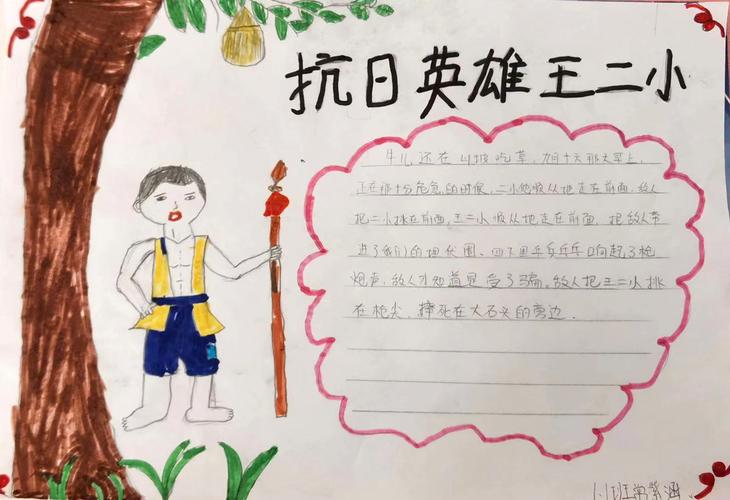 抗日英雄王二小
牛儿还在山坡吃草,九月十六那天早上,
正在那十分危急的时候,二小他顺从地走在前面,敌人
把二小挑在前面,王二小顺从地走在前面,把敌人带
进了我们的埋伏圈、四下里乒乒乓乓响起了枪
炮声,敌人才知道是受了骗,敌人把王二小挑
在枪尖,摔死在大石头的旁边.